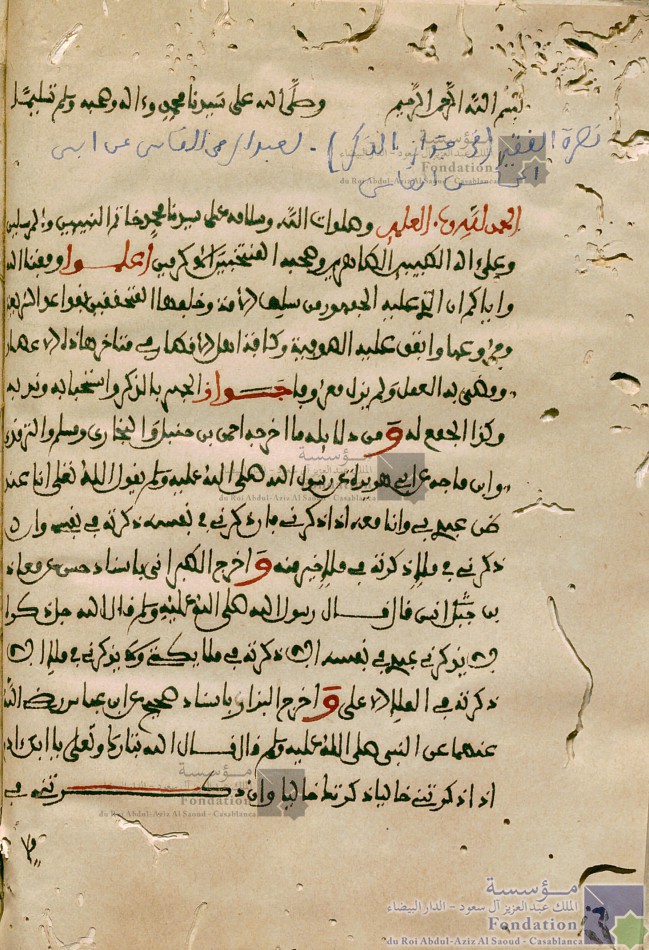 بسم الله الرحمن الرحيم وصلى الله على سيدنا محمد وءاله وصحبه وسلم تسليما
نصرة الفقير في جواز بالذكر). لعبد الرحمن الفاسي عن ابي
الفاسي
الحمد لله رب العلمين وصلوات الله وسلامه على سيدنا محمد خاتم النبيين والمرسلين
وعلى ءاله الطيبين الطاهرين وصحبه المنتخبين الاكرمين اعلموا وفقنا الله
واياكم ان الذي عليه الجمهور من سلف الامة وخلفها المتحققين بقواعد الشريعة
وفروعها واتفق عليه الصوفية وكافة اهل الافطار في متاخر هاذه الاعصار
ومضى به العمل ولم يزل معروفا جواز الجهر بالذكر واستحبابه وندبه
وكذا الجمع له ومن دلايله ما اخرجه احمد بن حنبل والبخاري ومسلم والترمذي
وابن ماجه عن ابي هريرة عن رسول الله صلى الله عليه وسلم يقول الله تعلى انا عند
ظن عبدي بي وانا معه اذا ذكرني فان ذكرني في نفسه ذكرته في نفسي وان
ذكرني في ملإ ذكرته في ملإ خير منه واخرج الطبراني باسناد حسن عن معاذ
بن جبل انس قال قال رسول الله صلى الله عليه وسلم قال الله جل ذكره
لا يذكرني عبدي في نفسه الا ذكرته في ملإ ملايكتي ولا يذكرني في ملإ الا
ذكرته في الملإ الاعلى واخرج البزار باسناد صحيح عن ابن عباس رضي الله
عنهما عن النبي صلى الله عليه وسلم قال قال الله تبارك وتعلى يا ابن ادم
اذا ذكرتني خاليا ذكرتك خاليا وان ذكرتني في
مؤسسة
الملك عبد العزيز آل سعود - الدار البيضاء
Fondation
du Roi Abdul-Aziz Al Saoud - Casablanca